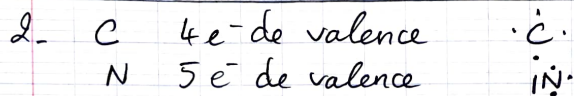 2- C 4e⁻ de valence ·Ċ·
N 5e⁻ de valence :Ṅ·